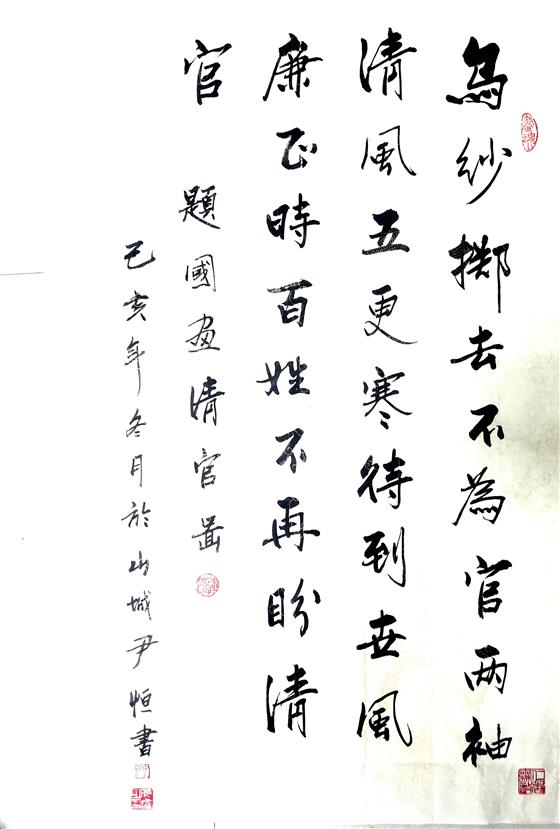 烏紗擲去不為官两袖
清風五更寒待到世風
廉正時百姓不再盼清
官
題國畫清官圖
己亥年冬月於山城尹恒書